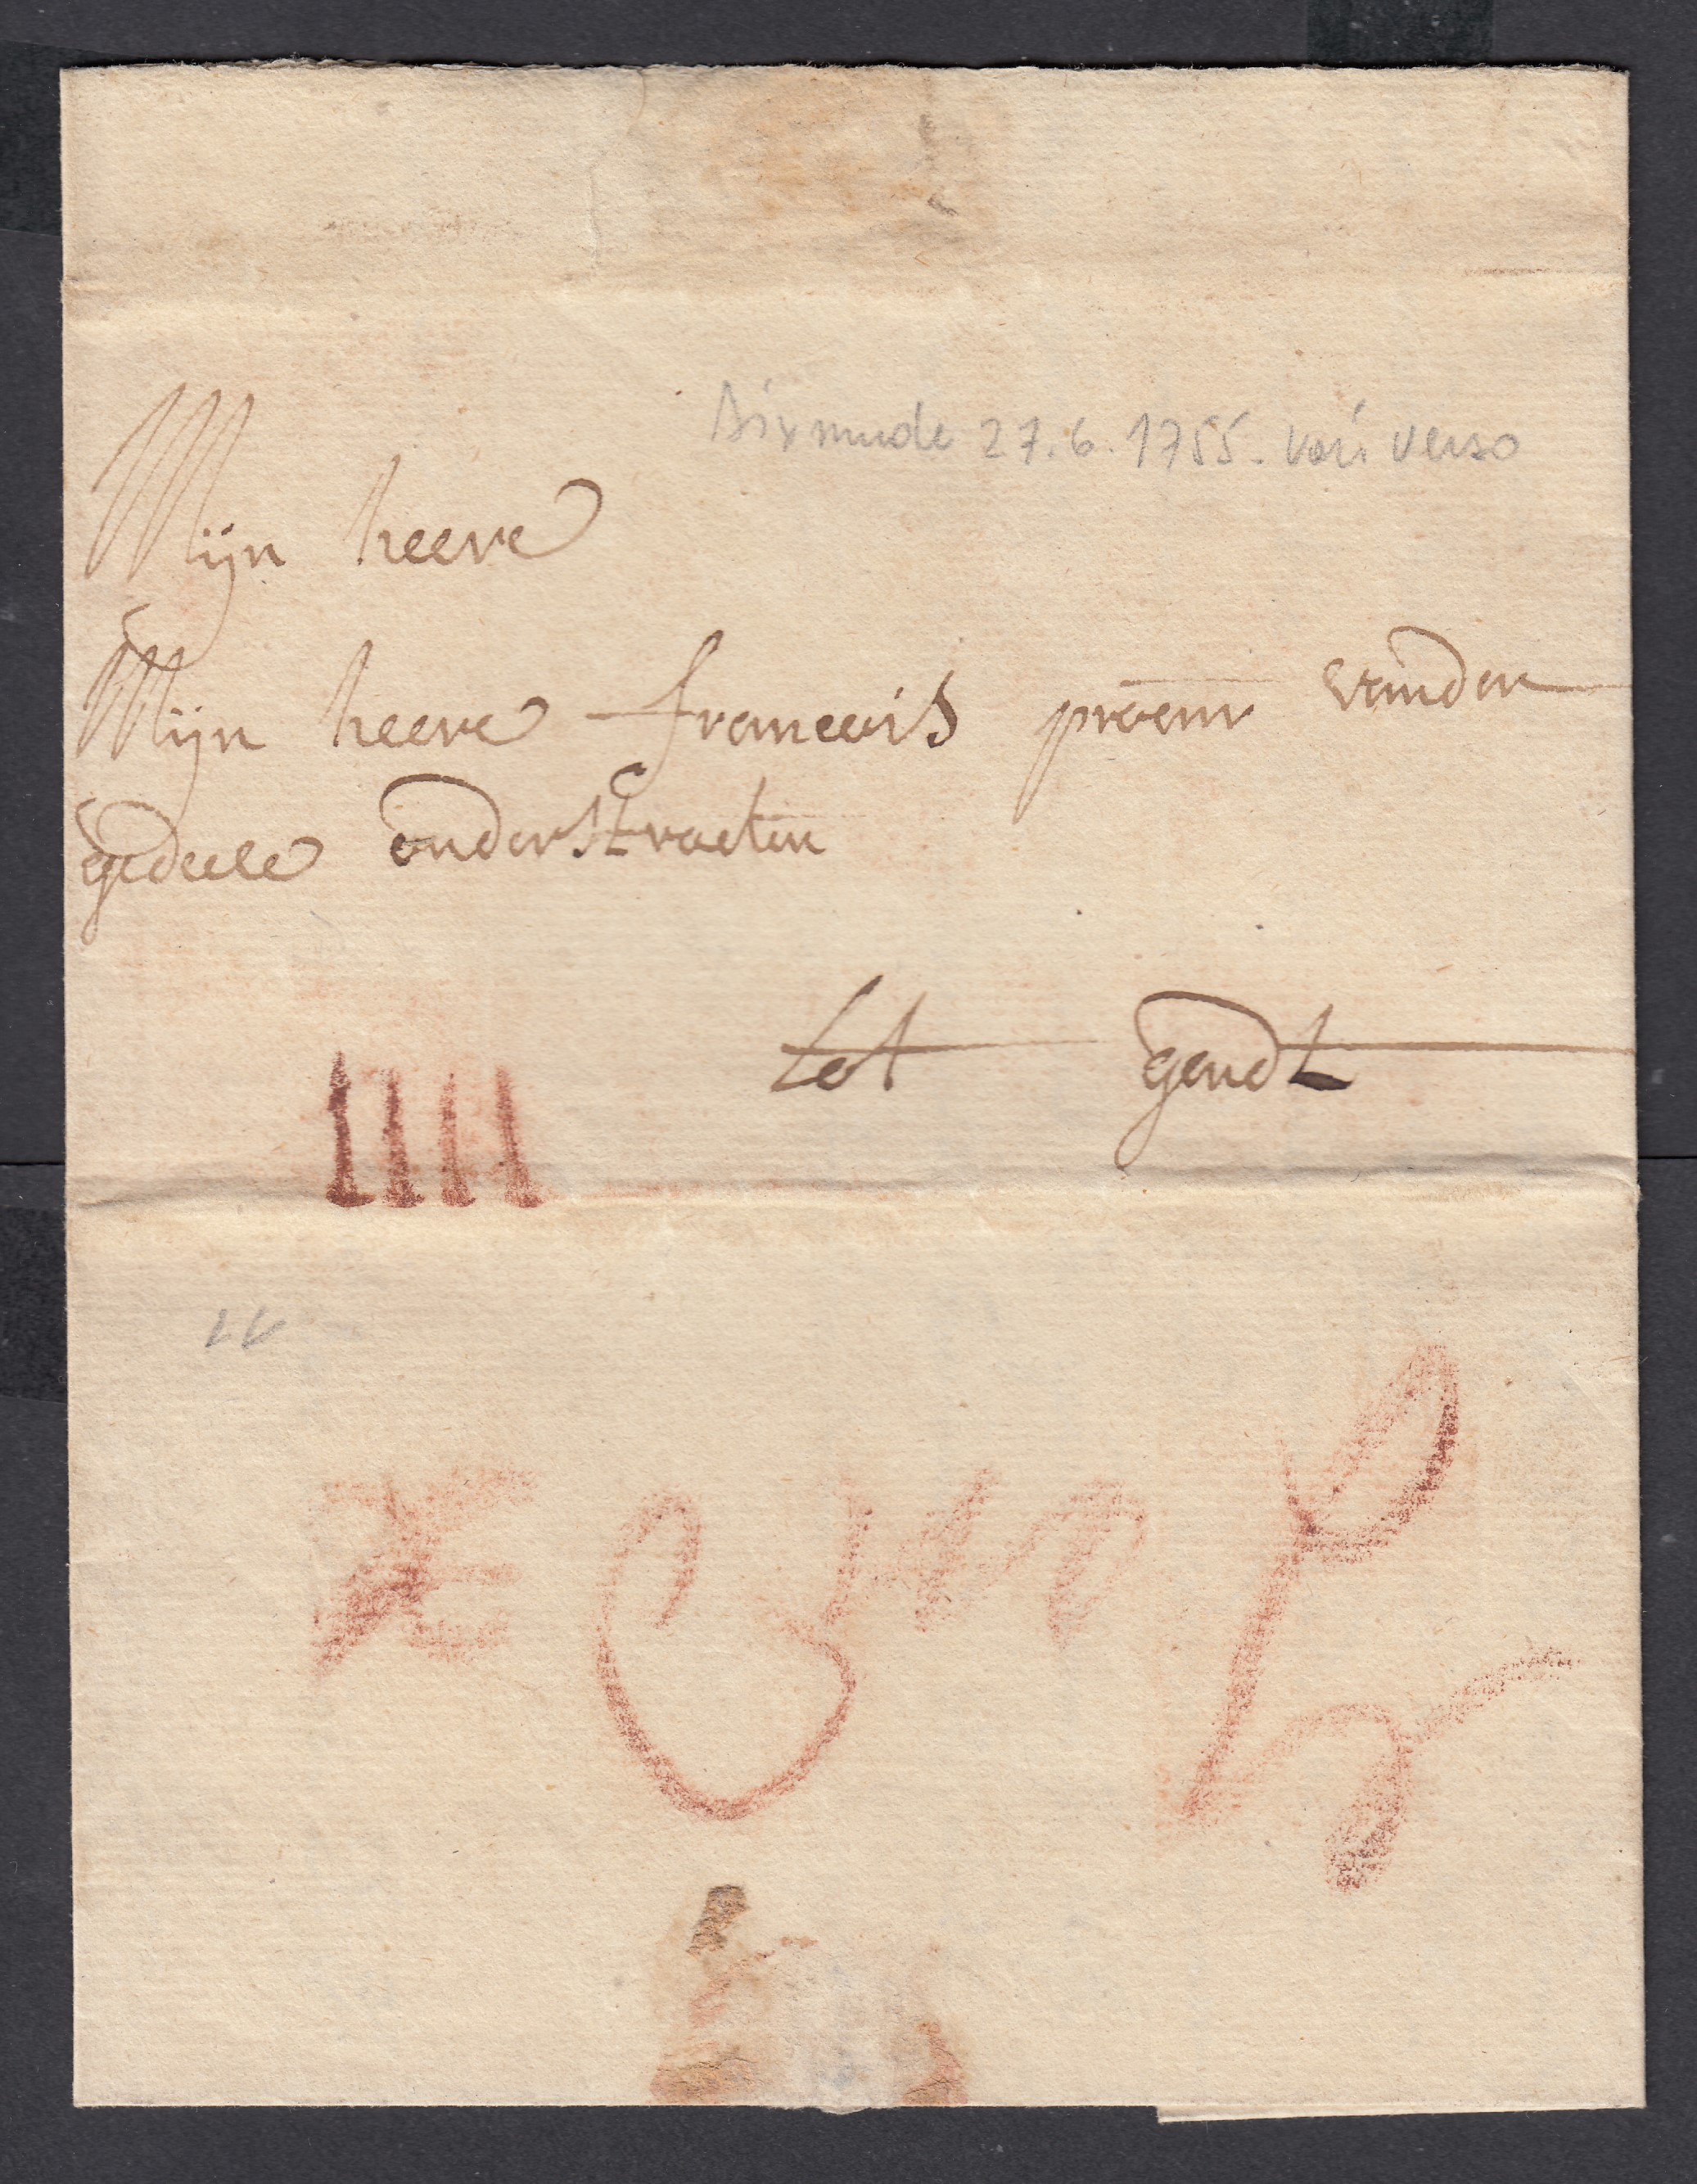 Dixmude 27.6.1755. voir verso
Mijn heere
Mijn heere francois procur vander
onderstraeten
tot gendt
IIII